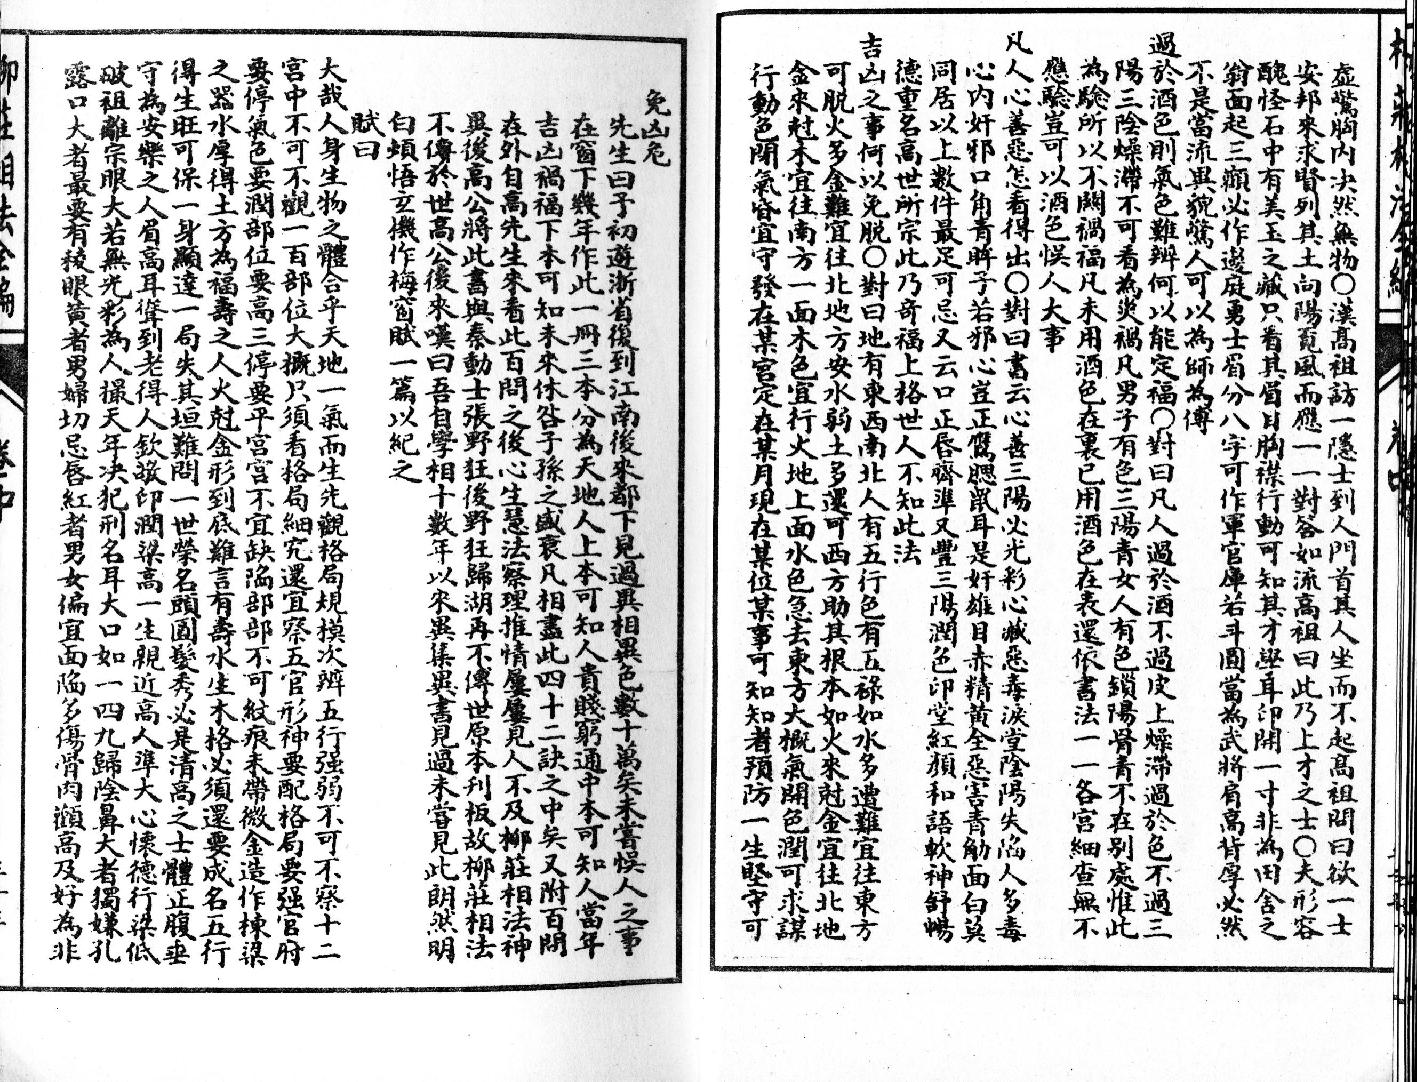 虛驚胸內决然無物○漢高祖訪一隱士到人門首其人坐而不起高祖問曰欲一士
安邦來求賢列其士向陽覓風而應一一對答如流高祖曰此乃上才之士○夫形容
醜怪石中有美玉之藏只看其眉目胸襟行動可知其才學耳印開一寸非為田舍之
翁面起三顴必作邊庭勇士眉分八字可作軍官庫若斗圓當為武將肩高背厚必然
不是當流異貌驚人可以為師為傅
過於酒色則氣色難辨何以能定福○對曰凡人過於酒不過皮上燥滯過於色不過三
陽三陰燥滯不可看為災禍凡男子有色三陽青女人有色鎖陽骨青不在別處惟此
為驗所以不關禍福凡未用酒色在裏已用酒色在表還依書法一一各宮細查無不
應驗豈可以酒色悞人大事
凡人心善惡怎看得出○對曰書云心善三陽必光彩心藏惡毒淚堂陰陽失陷人多毒
心內奸邪口角青眸子若邪心豈正鷹腮鼠耳是奸雄目赤精黃全惡害青觔面白莫
同居以上數件最足可忌又云口正唇齊準又豐三陽潤色印堂紅顏和語軟神舒暢
德重名高世所宗此乃奇福上格世人不知此法
吉凶之事何以免脫○對曰地有東西南北人有五行色有五祿如水多遭難宜往東方
可脫火多金難宜往北地方安水弱土多還可西方助其根本如火來尅金宜往北地
金來尅木宜往南方一面木色宜行火地上面水色急去東方大概氣開色潤可求謀
行動色閉氣昏宜守發在某宮定在某月現在某位某事可知知者預防一生堅守可
免凶危
先生曰予初遊浙省復到江南後來都下見過異相異色數十萬矣未嘗悞人之事
在窗下幾年作此一冊三本分為天地人上本可知人貴賤窮通中本可知人當年
吉凶禍福下本可知未來休咎子孫之盛衰凡相盡此四十二訣之中矣又附百問
在外自高先生來看此百問之後心生慧法察理推情屢屢見人不及柳莊相法神
異後高公將此書與秦動士張野狂後野狂歸湖再不傳世原本刋板故柳莊相法
不傳於世高公後來嘆曰吾自學相十數年以來異集異書見過未嘗見此朗然明
白頓悟玄機作梅窗賦一篇以紀之
賦曰
大哉人身生物之體合乎天地一氣而生先觀格局規模次辨五行强弱不可不察十二
宮中不可不觀一百部位大概只須看格局細究還宜察五官形神要配格局要强官府
要停氣色要潤部位要高三停要平宮宮不宜缺陷部部不可紋痕木帶微金造作棟梁
之器水厚得土方為福壽之人火尅金形到底難言有壽水生木格必須還要成名五行
得生旺可保一身顯達一局失其垣難問一世榮名頭圓髮秀必是清高之士體正腹垂
守為安樂之人眉高耳聳到老得人欽敬印潤梁高一生親近高人準大心懷德行梁低
破祖離宗眼大若無光彩為人撮天年决犯刑名耳大口如一四九歸陰鼻大者獨嫌孔
露口大者最要有稜眼黃者男婦切忌唇紅者男女偏宜面陷多傷骨肉顴高及好為非
柳莊相法全編
卷中